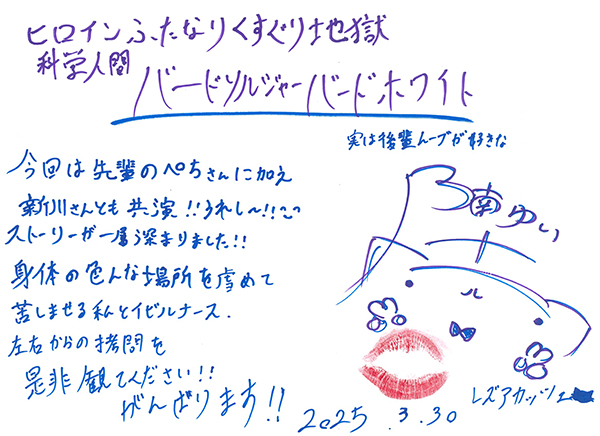 ヒロインふたなりくすぐり地獄
科学人間
バードソルジャーバードホワイト
実は後輩ムーブが好きな
南ゆい
今回は先輩のぺちさんに加え
新川さんとも共演!!うれし〜!!
ストーリーが一層深まりました!!
身体の色んな場所を虐めて
苦しませる私とイビルナース.
左右からの拷問を
是非観てください!!
がんばります!!
2025.3.30
レズアカッツェ